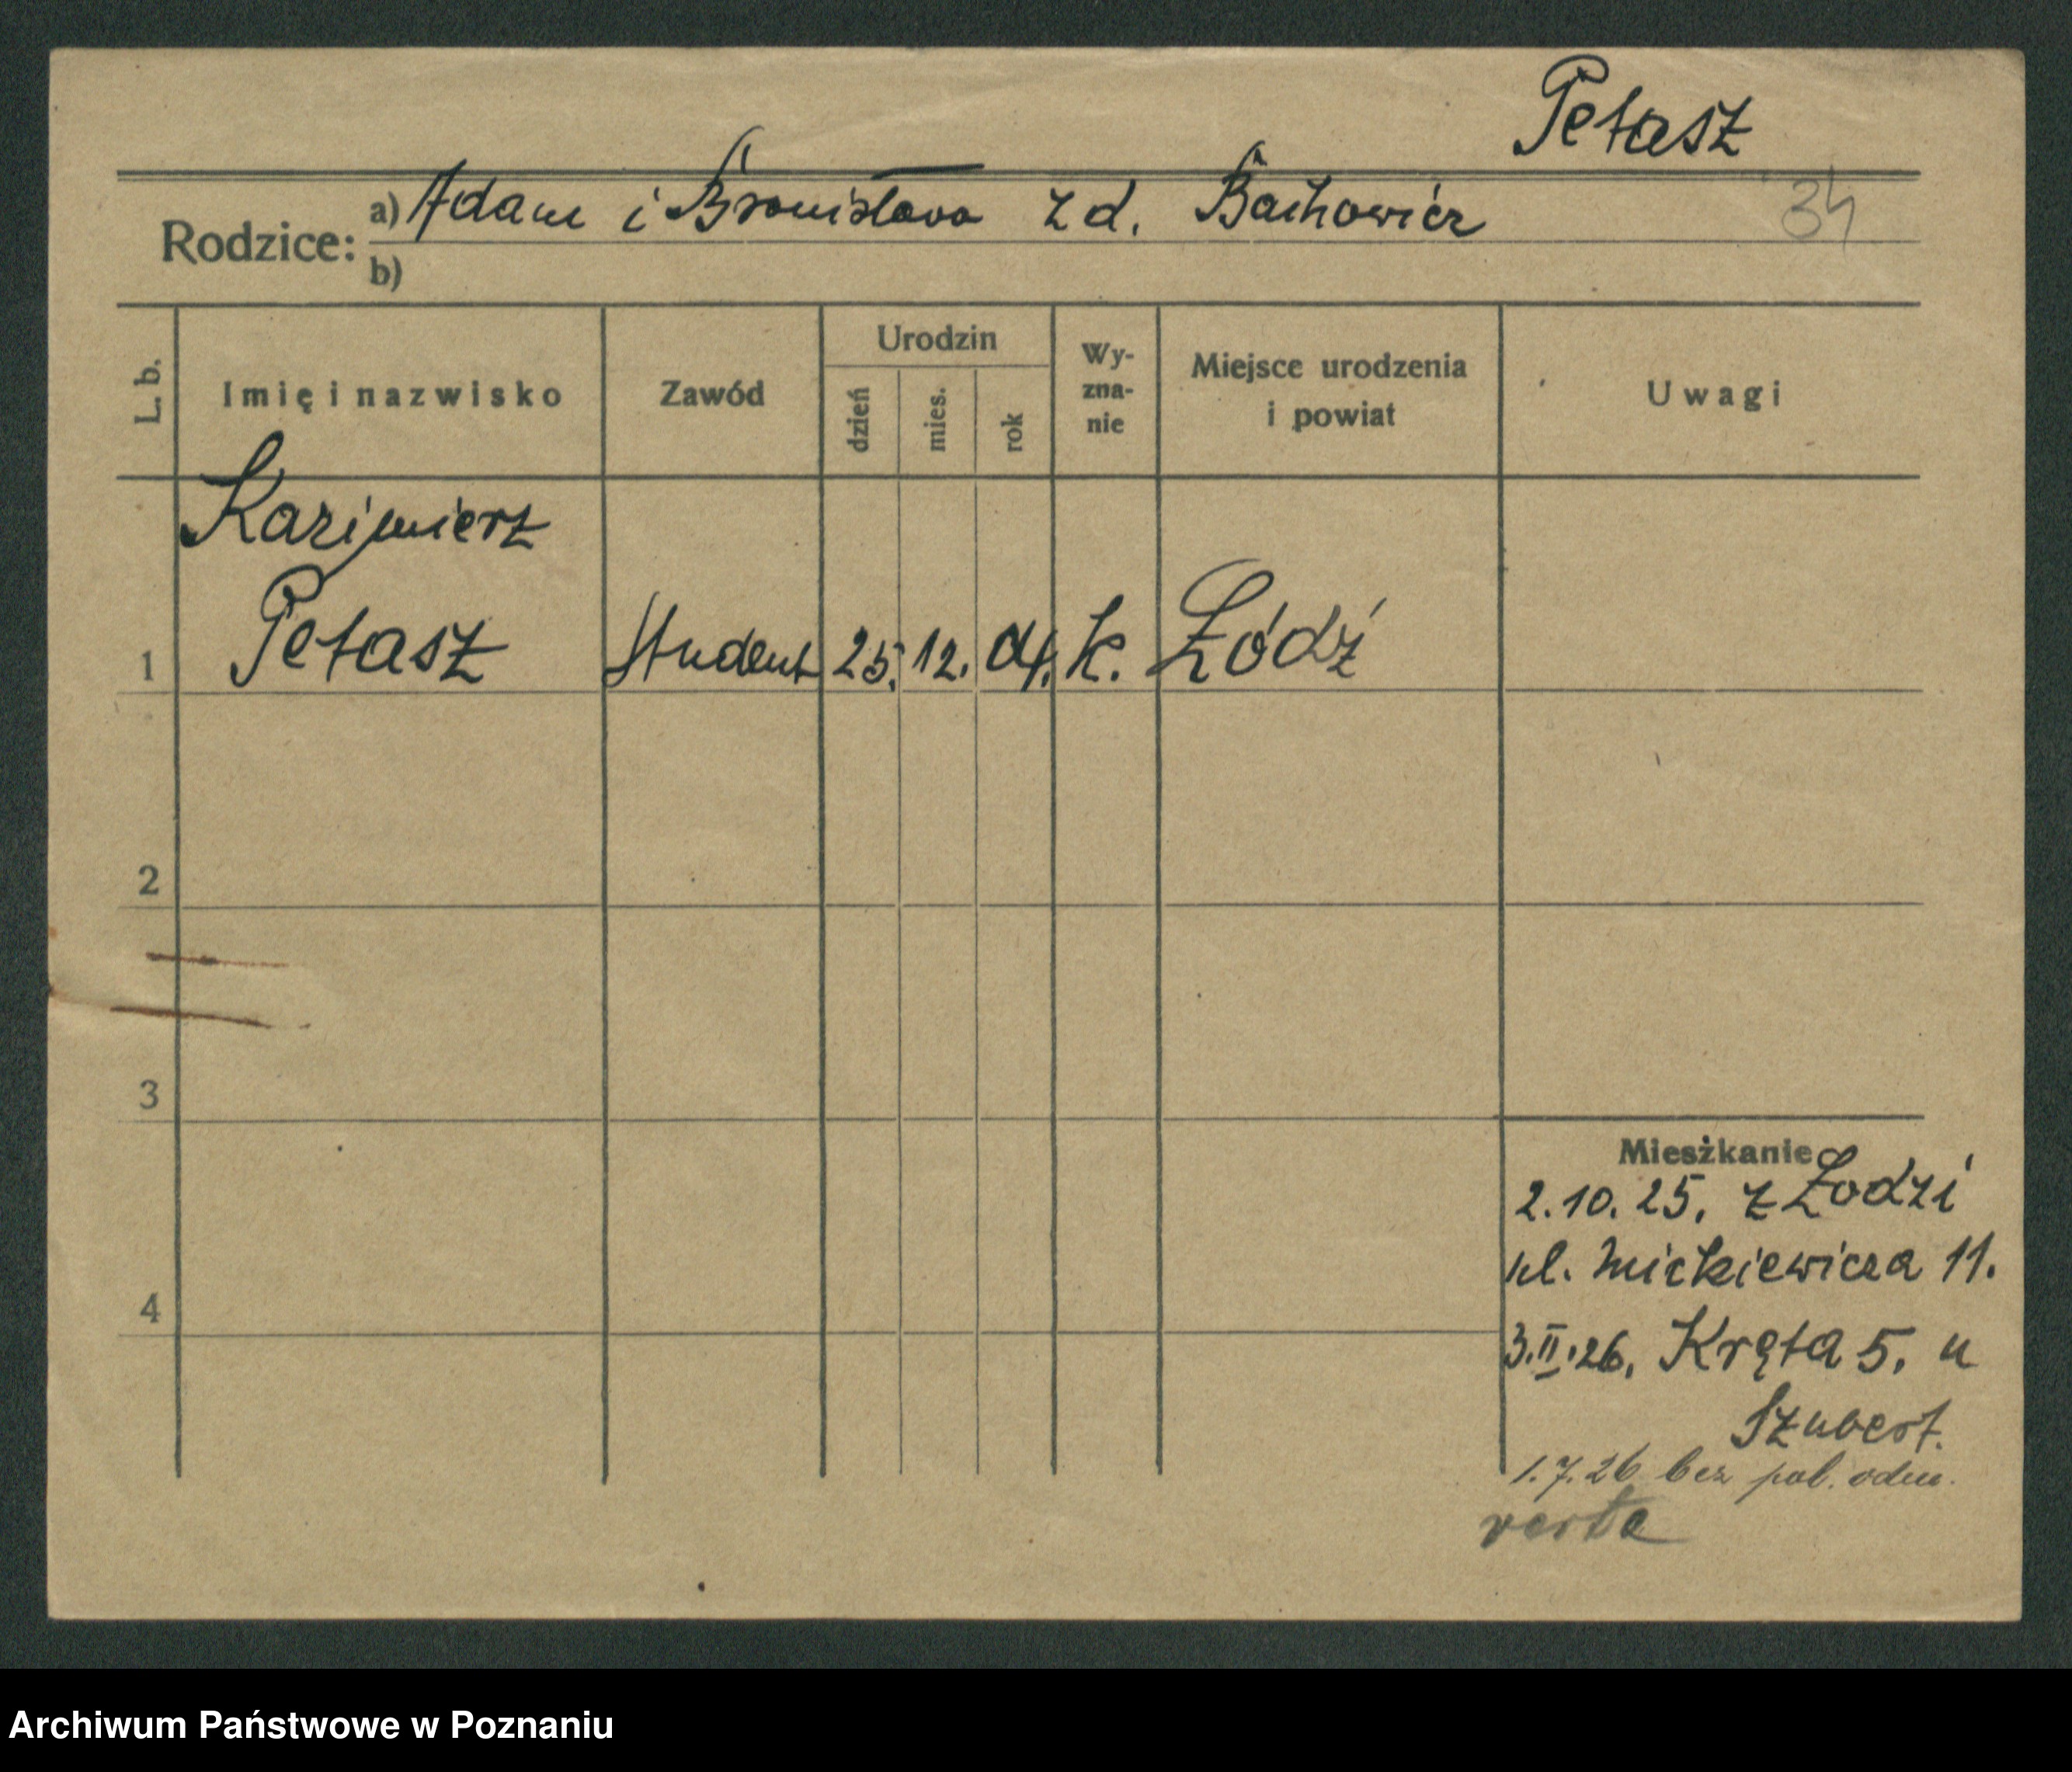 Petasz
Rodzice: a) Adam i Bronisława z d. Bachowicz 34
b)
L. b. Imię i nazwisko Zawód Urodzin dzień mies. rok Wy-zna-nie Miejsce urodzenia i powiat Uwagi
Kazimierz
1 Petasz Student 25. 12. 04. k. Łódź
2
3
Mieszkanie
2.10.25. z Łodzi
ul. Mickiewicza 11.
4
3.II.26. Kręta 5. u
Szubert.
1.7.26 bez pol. odm.
Archiwum Państwowe w Poznaniu